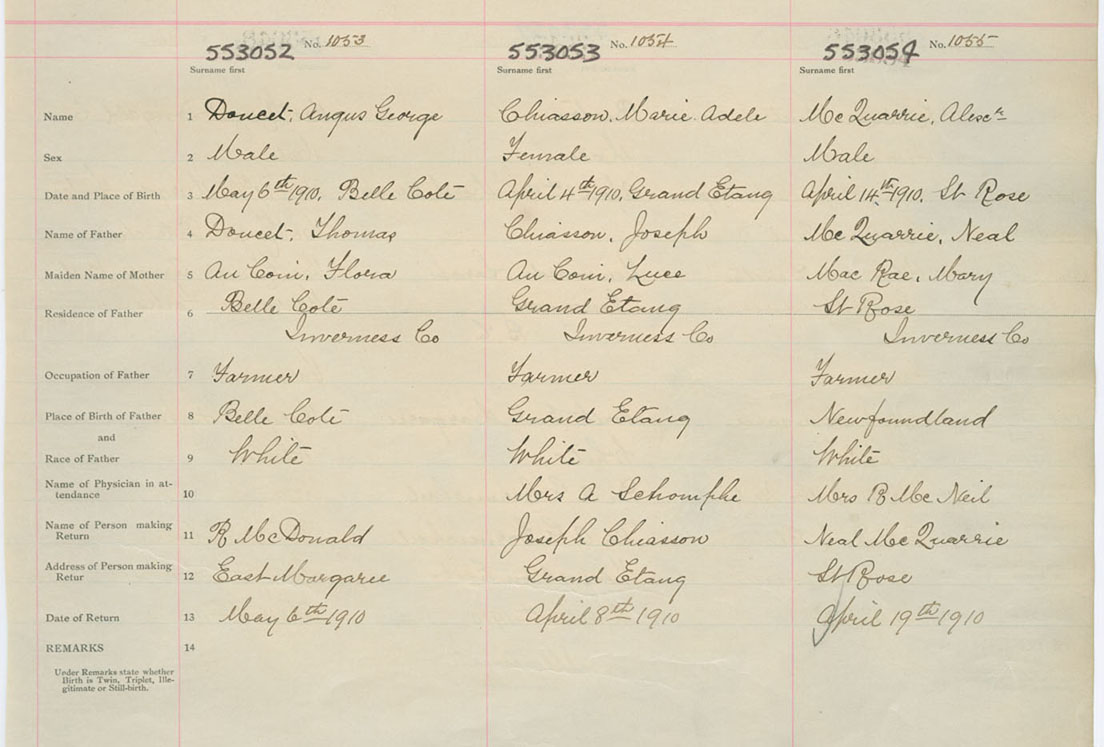 553052 No. 1053 553053 No. 1054 553054 No. 1055
Surname first Surname first Surname first
Name 1 Doucet, Angus George Chiasson, Marie Adele Mc Quarrie, Alexr
Sex 2 Male Female Male
Date and Place of Birth 3 May 6th 1910, Belle Coté April 4th 1910, Grand Etang April 14th 1910, St Rose
Name of Father 4 Doucet, Thomas Chiasson, Joseph Mc Quarrie, Neal
Maiden Name of Mother 5 Au Coin, Flora Au Coin, Luce Mac Rae, Mary
Residence of Father 6 Belle Coté Grand Etang St Rose
Inverness Co Inverness Co Inverness Co
Occupation of Father 7 Farmer Farmer Farmer
Place of Birth of Father 8 Belle Coté Grand Etang Newfoundland
and
Race of Father 9 White White White
Name of Physician in at-
tendance 10 Mrs A Schomphe Mrs R Mc Neil
Name of Person making
Return 11 R McDonald Joseph Chiasson Neal Mc Quarrie
Address of Person making
Retur 12 East Margaree Grand Etang St Rose
Date of Return 13 May 6th 1910 April 8th 1910 April 19th 1910
REMARKS 14
Under Remarks state whether
Birth is Twin, Triplet, Ille-
gitimate or Still-birth.